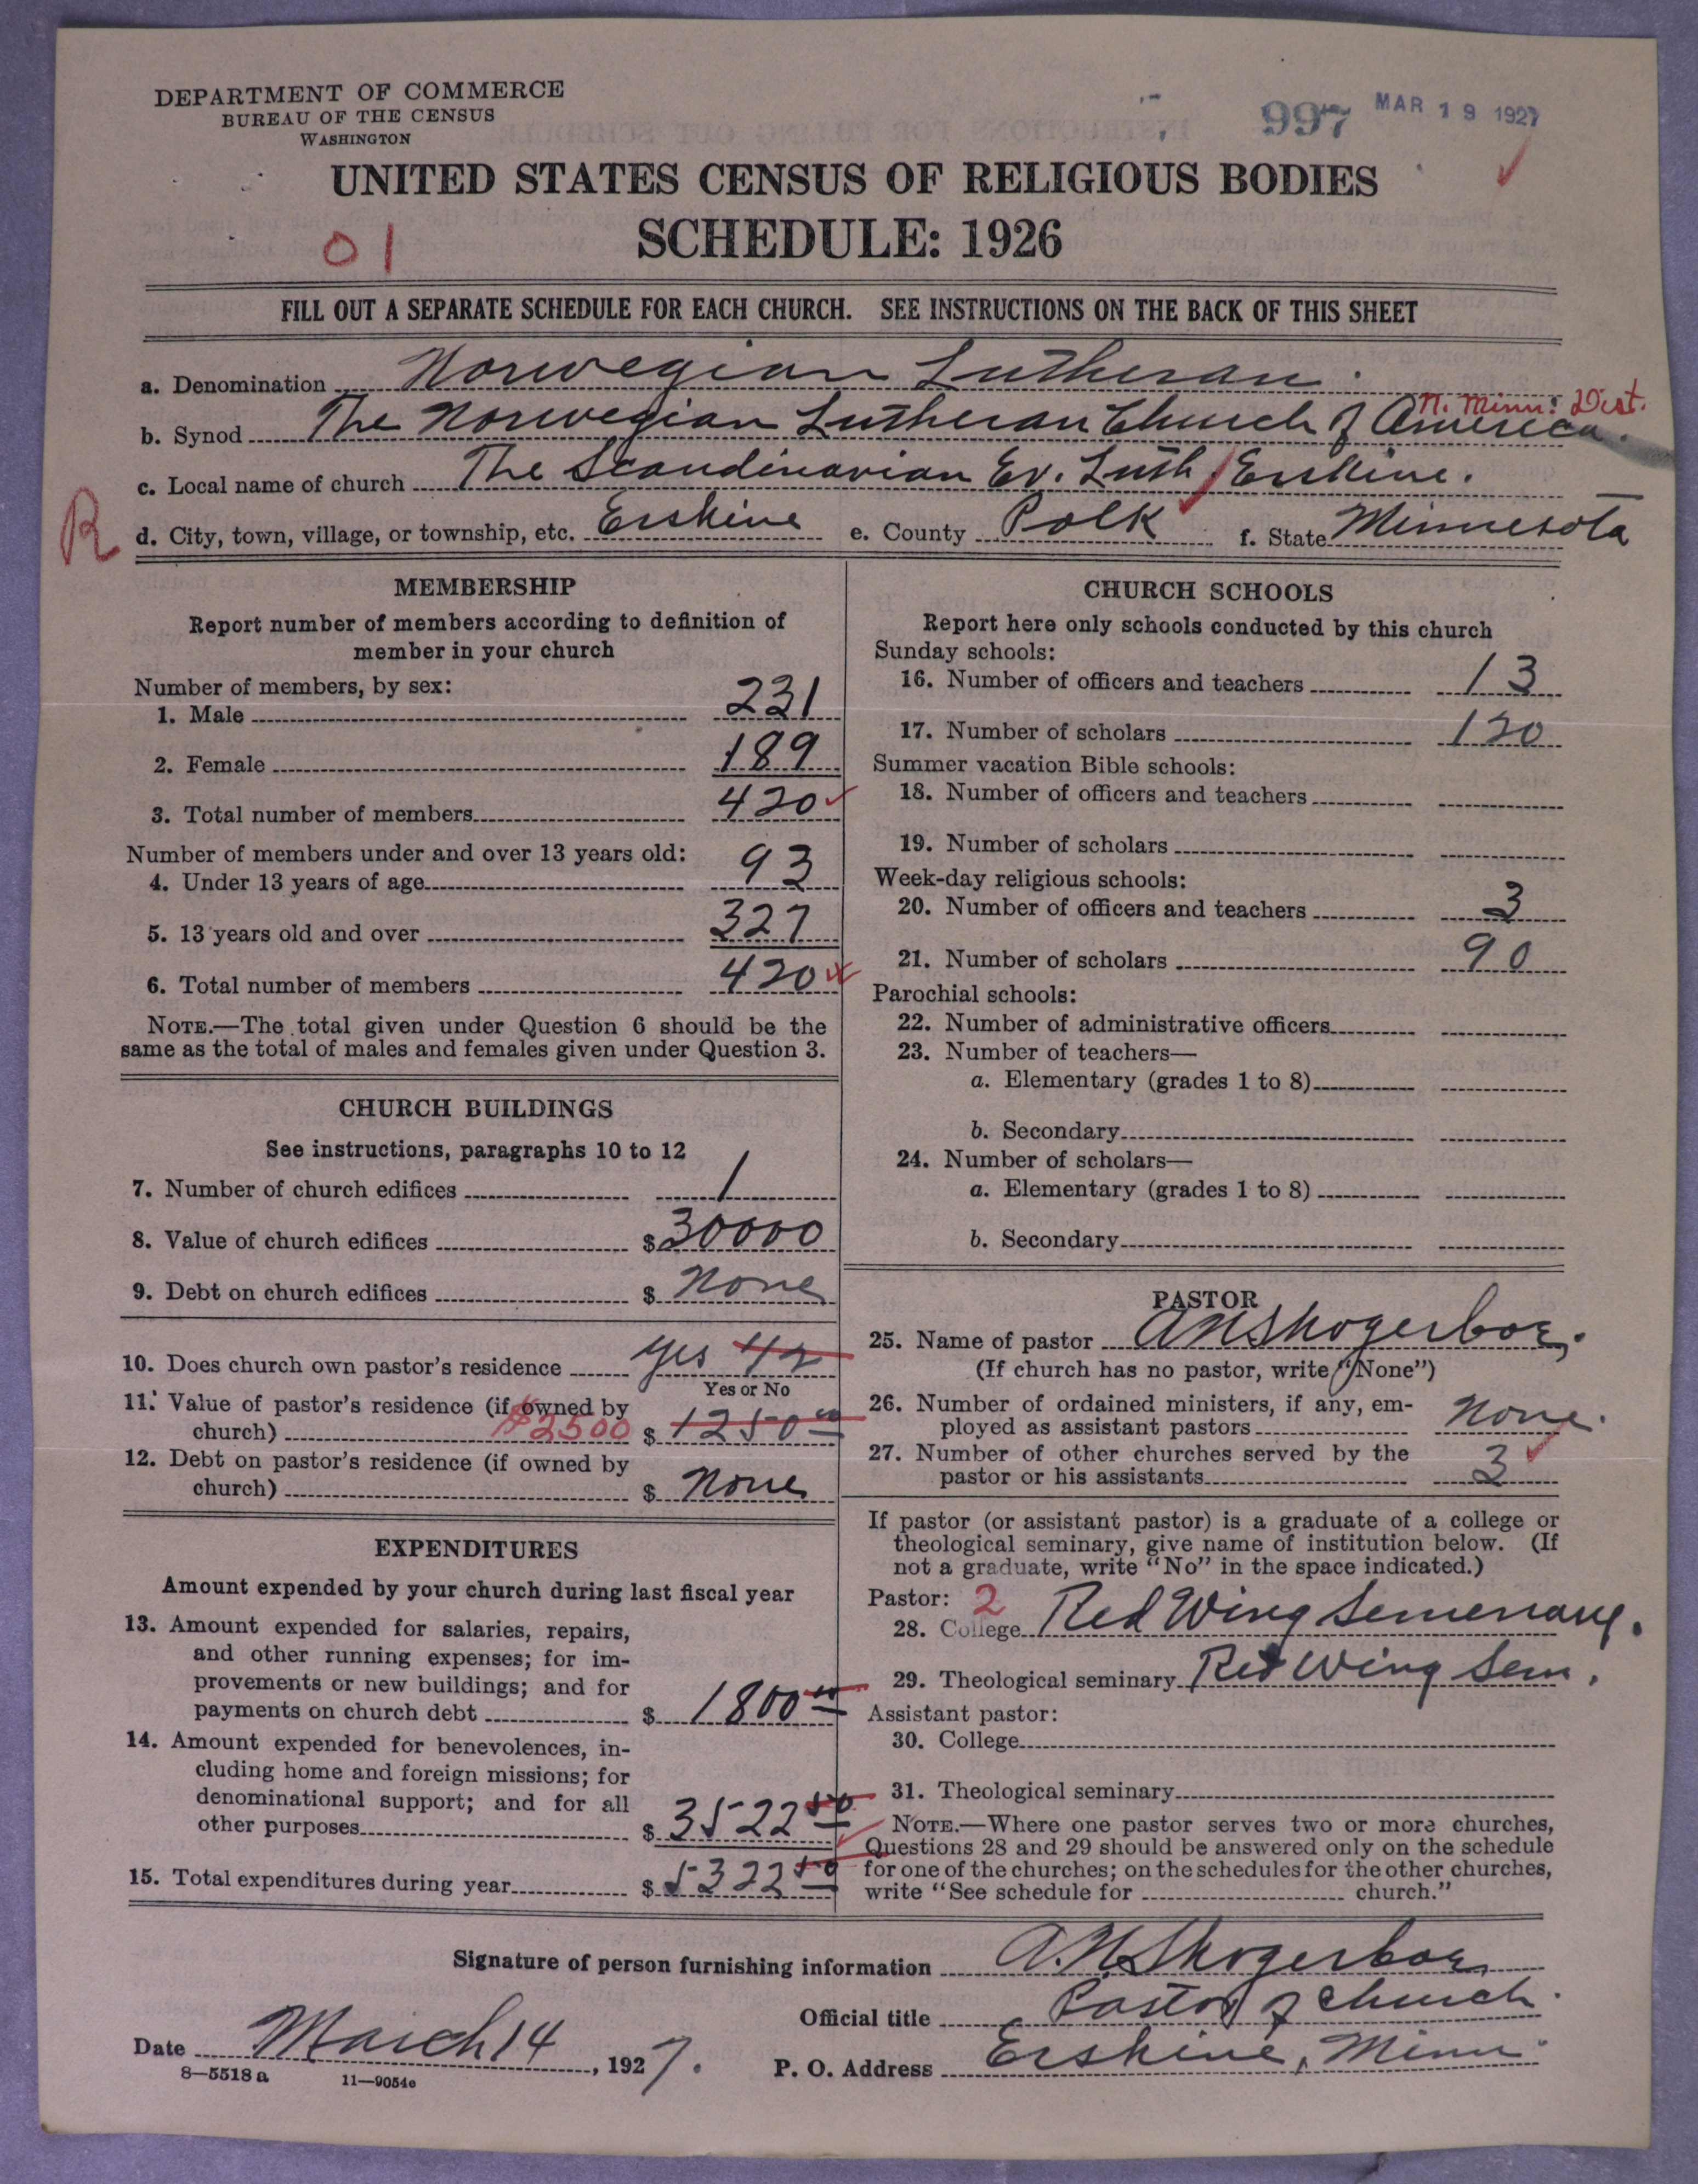 DEPARTMENT OF COMMERCE
BUREAU OF THE CENSUS
WASHINGTON
997 MAR 19 1927
UNITED STATES CENSUS OF RELIGIOUS BODIES
SCHEDULE: 1926
01
FILL OUT A SEPARATE SCHEDULE FOR EACH CHURCH. SEE INSTRUCTIONS ON THE BACK OF THIS SHEET
a. Denomination Norwegian Lutheran.
N. Minn. Dist.
b. Synod The Norwegian Lutheran Church of America.
c. Local name of church The Scandinavian Ev. Luth / Erskine.
R
d. City, town, village, or township, etc. Erskine e. County Polk f. State Minnesota
MEMBERSHIP
Report number of members according to definition of
member in your church
Number of members, by sex:
1. Male 231
2. Female 189
3. Total number of members 420
Number of members under and over 13 years old:
4. Under 13 years of age 93
5. 13 years old and over 327
6. Total number of members 420
NOTE.—The total given under Question 6 should be the
same as the total of males and females given under Question 3.
CHURCH BUILDINGS
See instructions, paragraphs 10 to 12
7. Number of church edifices 1
8. Value of church edifices $ 30000
9. Debt on church edifices $ None
10. Does church own pastor's residence yes 1/2
Yes or No
11. Value of pastor's residence (if owned by
church) $2500 $ 1250 00
12. Debt on pastor's residence (if owned by
church) $ None
EXPENDITURES
Amount expended by your church during last fiscal year
13. Amount expended for salaries, repairs,
and other running expenses; for im-
provements or new buildings; and for
payments on church debt $ 1800 00
14. Amount expended for benevolences, in-
cluding home and foreign missions; for
denominational support; and for all
other purposes $ 3522 50
15. Total expenditures during year $ 5322 50
CHURCH SCHOOLS
Report here only schools conducted by this church
Sunday schools:
16. Number of officers and teachers 13
17. Number of scholars 120
Summer vacation Bible schools:
18. Number of officers and teachers
19. Number of scholars
Week-day religious schools:
20. Number of officers and teachers 3
21. Number of scholars 90
Parochial schools:
22. Number of administrative officers
23. Number of teachers—
a. Elementary (grades 1 to 8)
b. Secondary
24. Number of scholars—
a. Elementary (grades 1 to 8)
b. Secondary
PASTOR
25. Name of pastor A N Skogerboe.
(If church has no pastor, write "None")
26. Number of ordained ministers, if any, em-
ployed as assistant pastors None.
27. Number of other churches served by the
pastor or his assistants 3
If pastor (or assistant pastor) is a graduate of a college or
theological seminary, give name of institution below. (If
not a graduate, write "No" in the space indicated.)
Pastor: 2
28. College Red Wing Semenary.
29. Theological seminary Red Wing Sem.
Assistant pastor:
30. College
31. Theological seminary
NOTE.—Where one pastor serves two or more churches,
Questions 28 and 29 should be answered only on the schedule
for one of the churches; on the schedules for the other churches,
write "See schedule for church."
Signature of person furnishing information A.N. Skogerboe
Official title Pastor of church.
Date March 14, 1927. P. O. Address Erskine, Minn.
8—5518 a 11—9054c